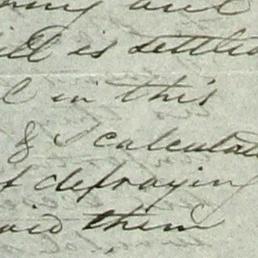 and
is settled
in this
& I calculate
of defraying
them